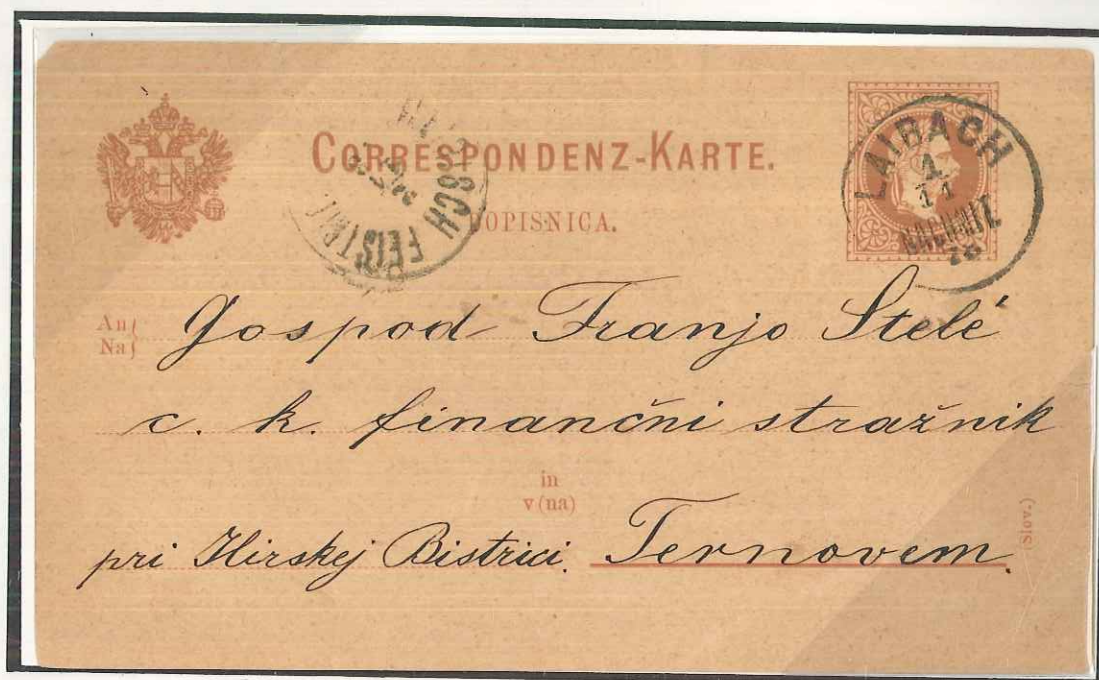 CORRESPONDENZ-KARTE.
DOPISNICA.
ILLYRISCH FEISTRITZ
LAIBACH
1
11
NACHMIT
78
An
Na
Gospod Franjo Stelé
c. k. finančni stražnik
in
v(na)
pri Ilirskej Bistrici. Ternovem.
(Slov.)